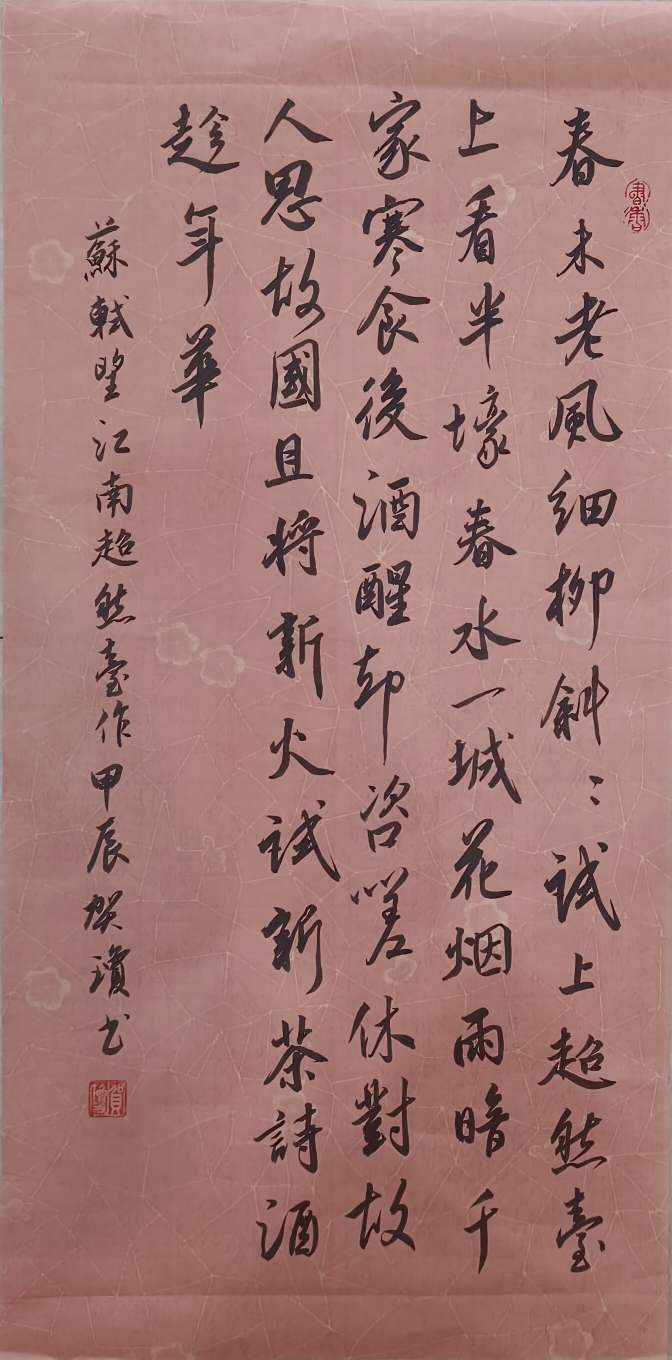 春未老風細柳斜〻試上超然臺
上看半壕春水一城花烟雨暗千
家寒食後酒醒却咨嗟休對故
人思故國且將新火試新茶詩酒
趁年華
蘇軾望江南超然臺作甲辰賀瓊书